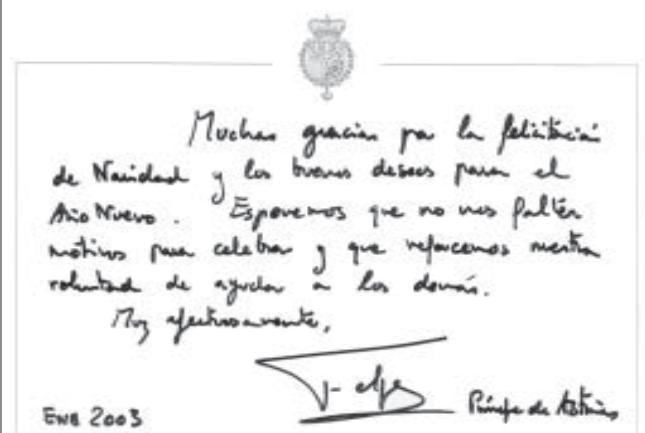 Muchas gracias por la felicitación
de Navidad y los buenos deseos para el
Año Nuevo. Esperemos que no nos falten
motivos para celebrar y que reforcemos nuestra
voluntad de ayudar a los demás.
Muy afectuosamente,
Felipe
Príncipe de Asturias
ENE 2003